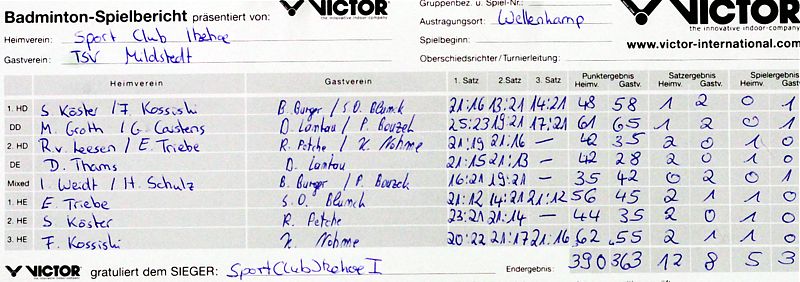 Badminton-Spielbericht präsentiert von: VICTOR
the innovative indoor-company
Gruppenbez. u. Spiel-Nr.:
VICTOR
the innovative indoor-company
Austragungsort: Wellenkamp
Heimverein: Sport Club Itzehoe
Spielbeginn:
www.victor-international.com
Gastverein: TSV Mildstedt
Oberschiedsrichter/Turnierleitung:
Heimverein Gastverein 1. Satz 2. Satz 3. Satz Punktergebnis Heimv. Gastv. Satzergebnis Heimv. Gastv. Spielergebnis Heimv. Gastv.
1. HD S Köster / F. Kossiski B. Burger / S.O. Blunck 21:16 13:21 14:21 48 58 1 2 0 1
DD M. Groth / G. Carstens D. Lontou / P. Bouzek 25:23 19:21 17:21 61 65 1 2 0 1
2. HD R.v. Leesen / E. Triebe R. Petche / K. Nohme 21:19 21:16 — 42 35 2 0 1 0
DE D. Thams D. Lontou 21:15 21:13 — 42 28 2 0 1 0
Mixed I. Weidt / H. Schulz B. Burger / P. Bouzek 16:21 19:21 — 35 42 0 2 0 1
1. HE E. Triebe S.O. Blunck 21:12 14:21 21:12 56 45 2 1 1 0
2. HE S Köster R. Petche 23:21 21:14 — 44 35 2 0 1 0
3. HE F. Kossiski K. Nohme 20:22 21:17 21:16 62 55 2 1 1 0
VICTOR gratuliert dem SIEGER: Sport Club Itzehoe I Endergebnis: 390 363 12 8 5 3